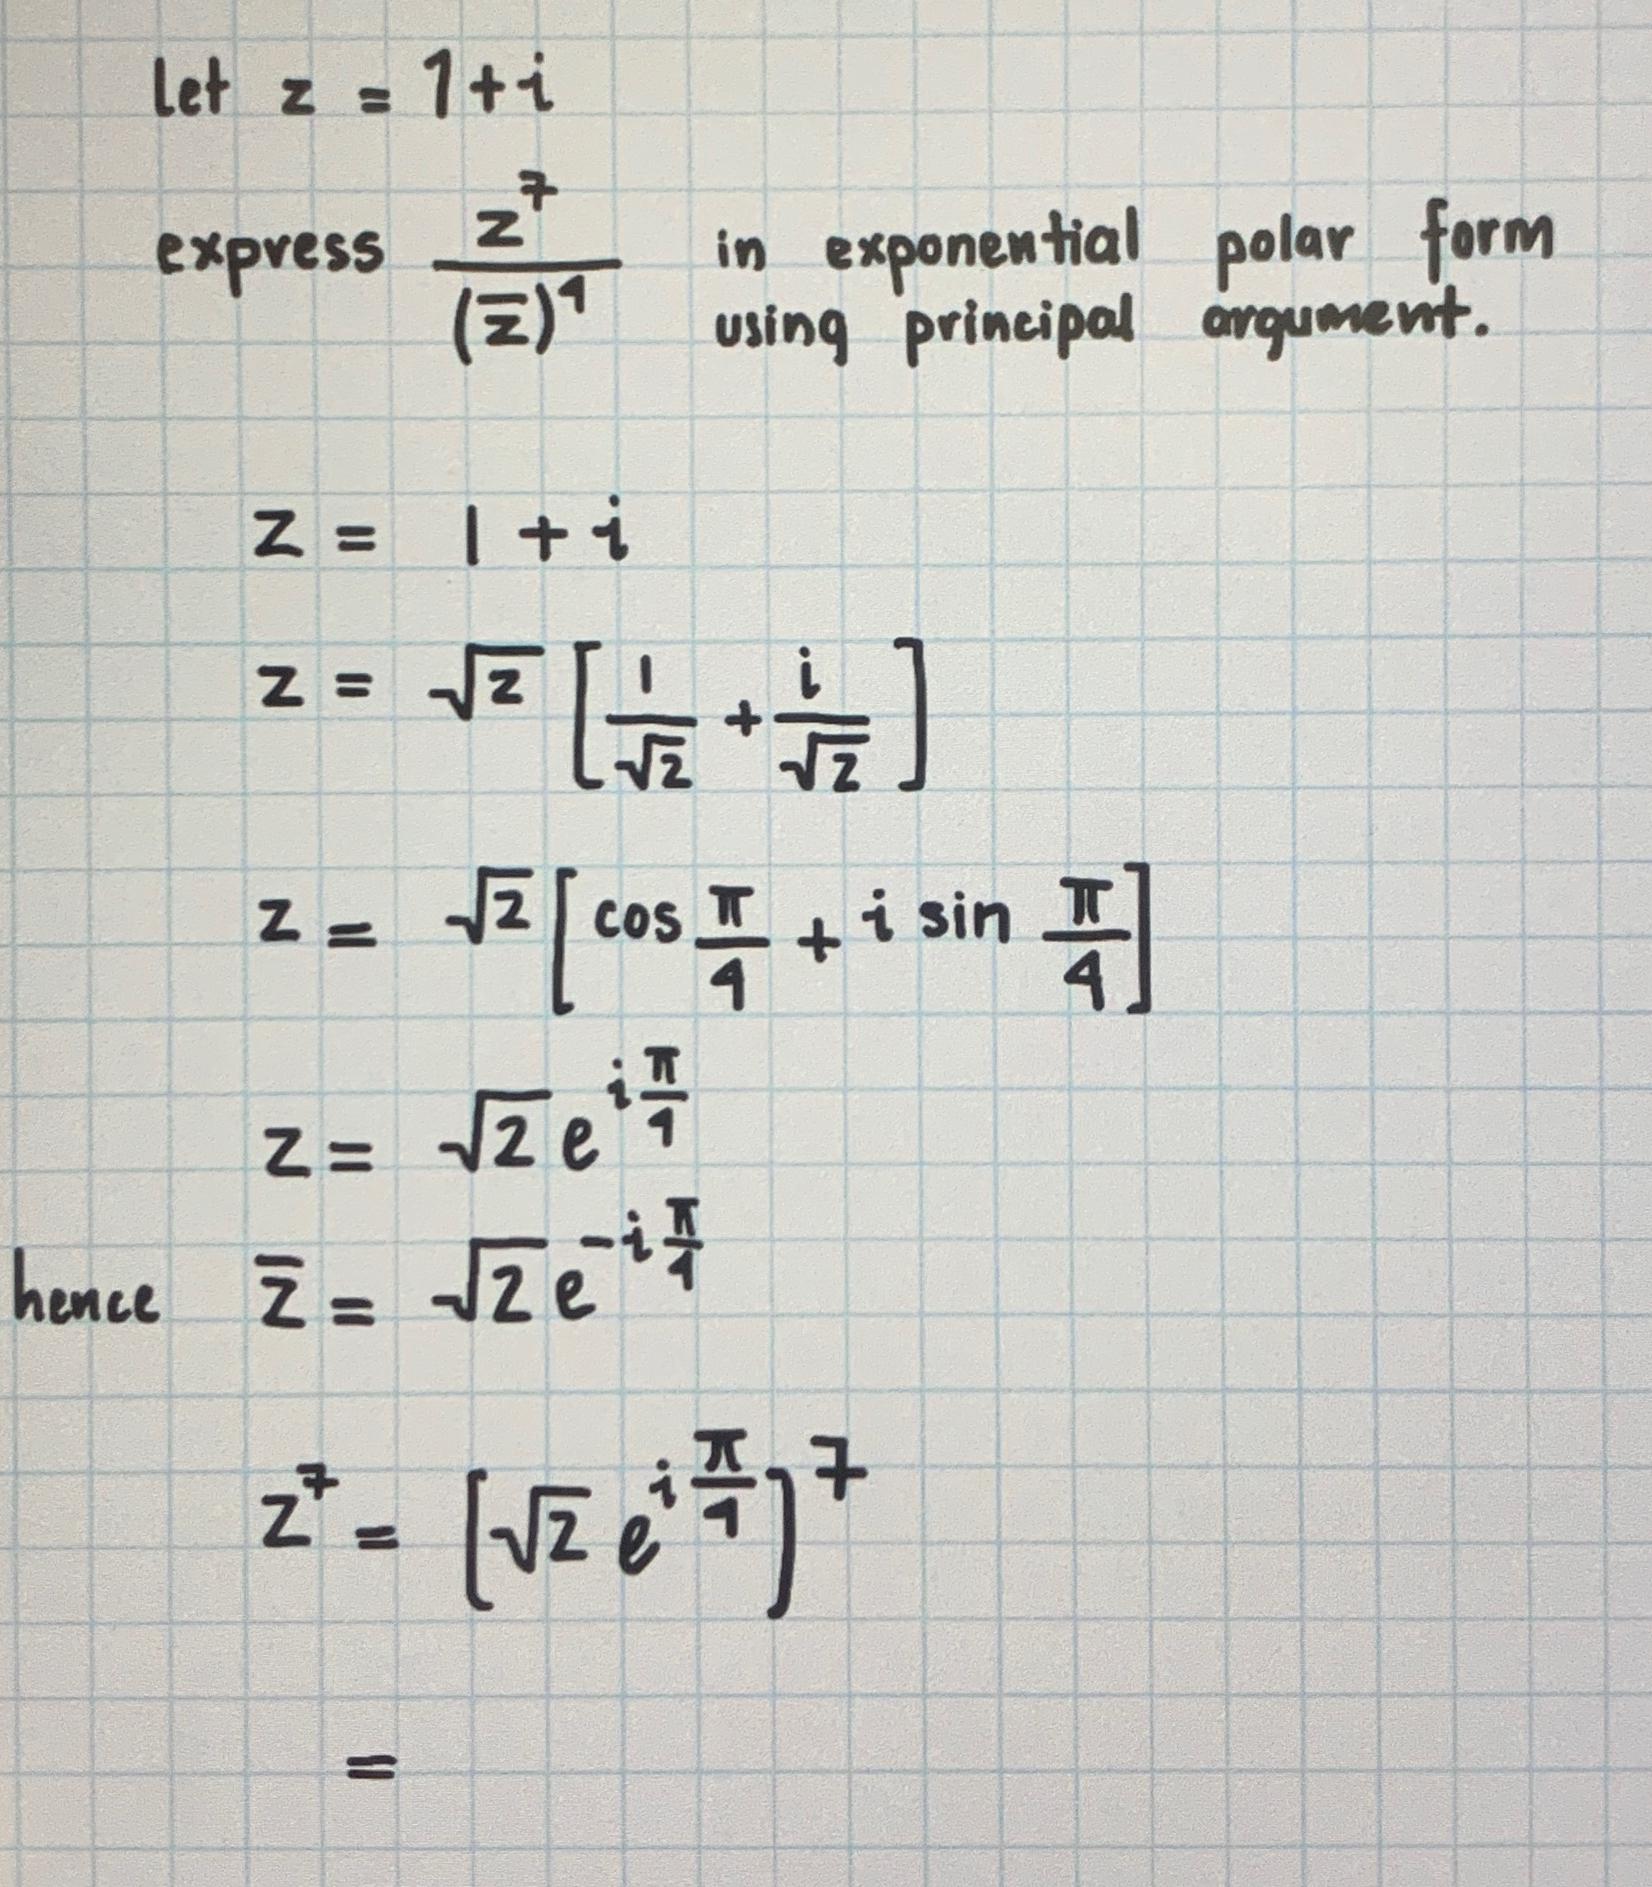 let z = 1+i
express z^7 / (z̄)^4 in exponential polar form
using principal argument.
z = 1 + i
z = √2 [1/√2 + i/√2]
z = √2 [cos π/4 + i sin π/4]
z = √2 e^(i π/4)
hence z̄ = √2 e^(-i π/4)
z^7 = [√2 e^(i π/4)]^7
=